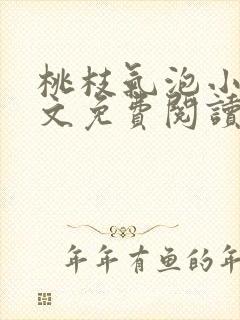 桃枝氣泡小
文免費閱讀
年年有鱼的年